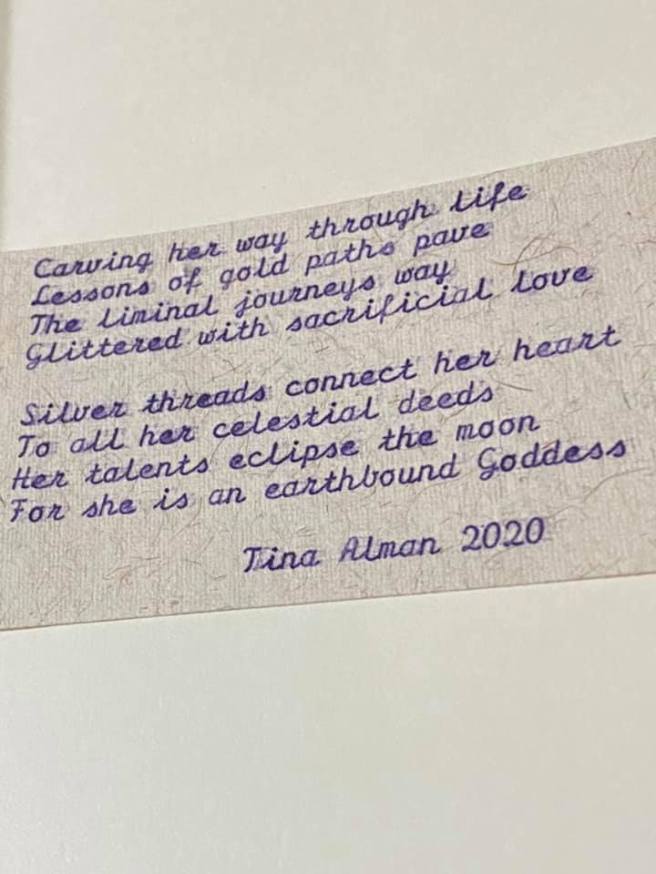 Carving her way through life
Lessons of gold paths pave
The liminal journeys way
Glittered with sacrificial love
Silver threads connect her heart
To all her celestial deeds
Her talents eclipse the moon
For she is an earthbound Goddess
Tina Alman 2020